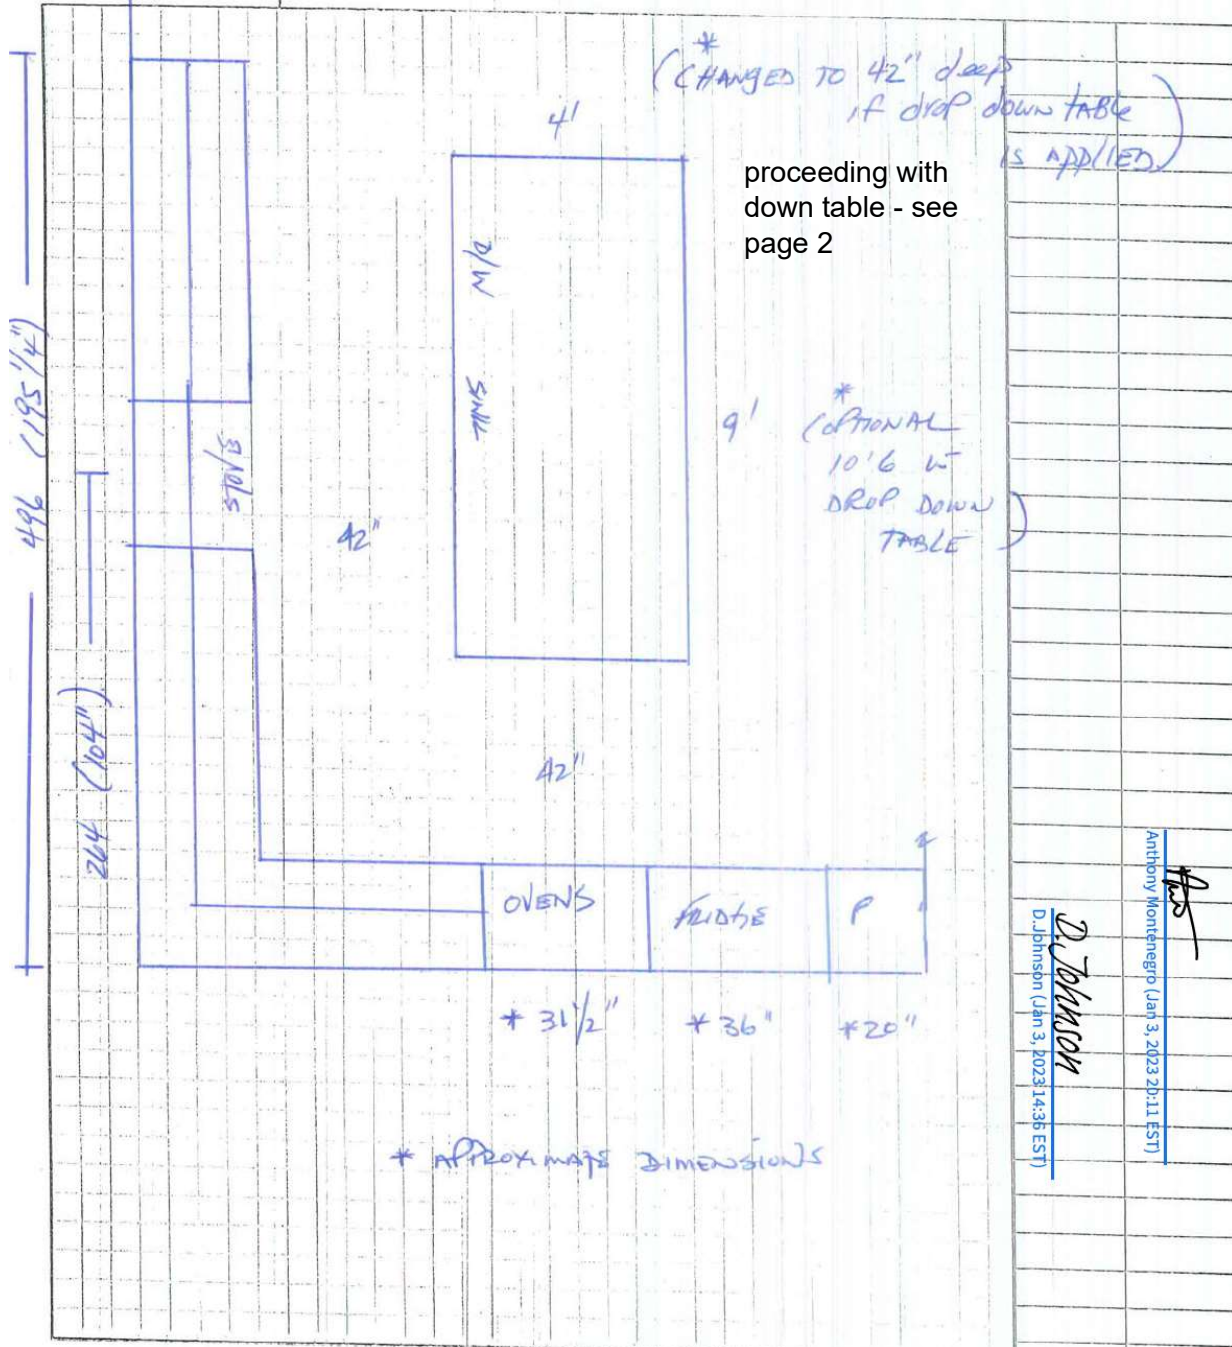 *
(CHANGED TO 42" deep
if drop down TABLE
IS APPLIED)
4'
proceeding with
down table - see
page 2
D/W
SINK
9'
*
(OPTIONAL
10'6 w
DROP DOWN
TABLE)
496 (195 1/4")
STOVE
42"
264 (104")
42"
OVENS
FRIDGE
P
* 31 1/2"
* 36"
* 20"
* APPROXIMATE DIMENSIONS
Anthony Montenegro (Jan 3, 2023 20:11 EST)
D. Johnson
D.Johnson (Jan 3, 2023 14:36 EST)